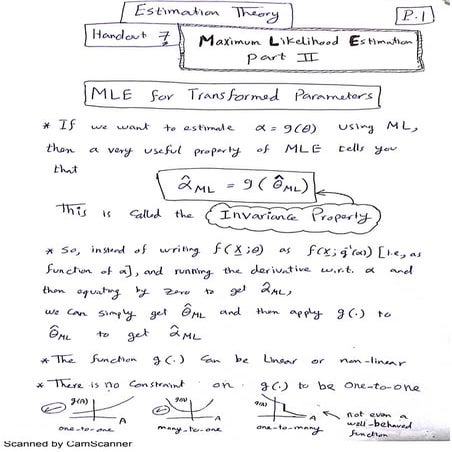 Estimation Theory
P.1
Handout 7
Maximum Likelihood Estimation
part II
MLE for Transformed Parameters
* If we want to estimate α = g(θ) using ML,
then a very useful property of MLE tells you
that
α̂ML = g(θ̂ML)
This is called the Invariance Property
* So, instead of writing f(X;θ) as f(X;g⁻¹(α)) [i.e, as
function of α], and running the derivative w.r.t. α and
then equating by zero to get α̂ML,
we can simply get θ̂ML and then apply g(.) to
θ̂ML to get α̂ML
* The function g(.) can be linear or non-linear
* There is no constraint on g(.) to be one-to-one
g(A) A
one-to-one
g(A) A
many-to-one
g(A) A
one-to-many
not even a
well-behaved
function
Scanned by CamScanner